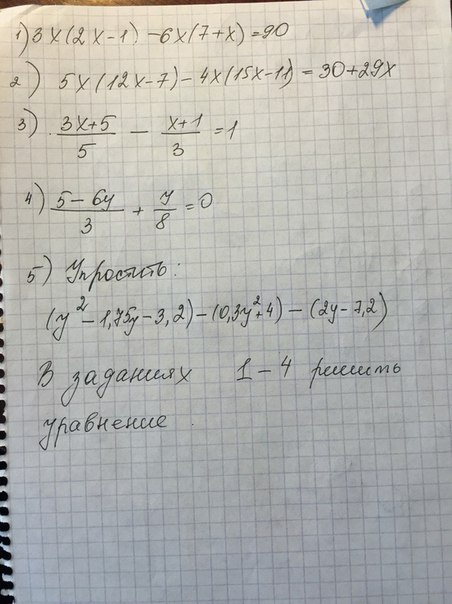 1) 3x(2x-1) - 6x(7+x) = 90
2) 5x(12x-7) - 4x(15x-11) = 30+29x
3) (3x+5)/5 - (x+1)/3 = 1
4) (5-6y)/3 + y/8 = 0
5) Упростить:
(y² - 1,75y - 3,2) - (0,3y² + 4) - (2y - 7,2)
В заданиях 1-4 решить
уравнение